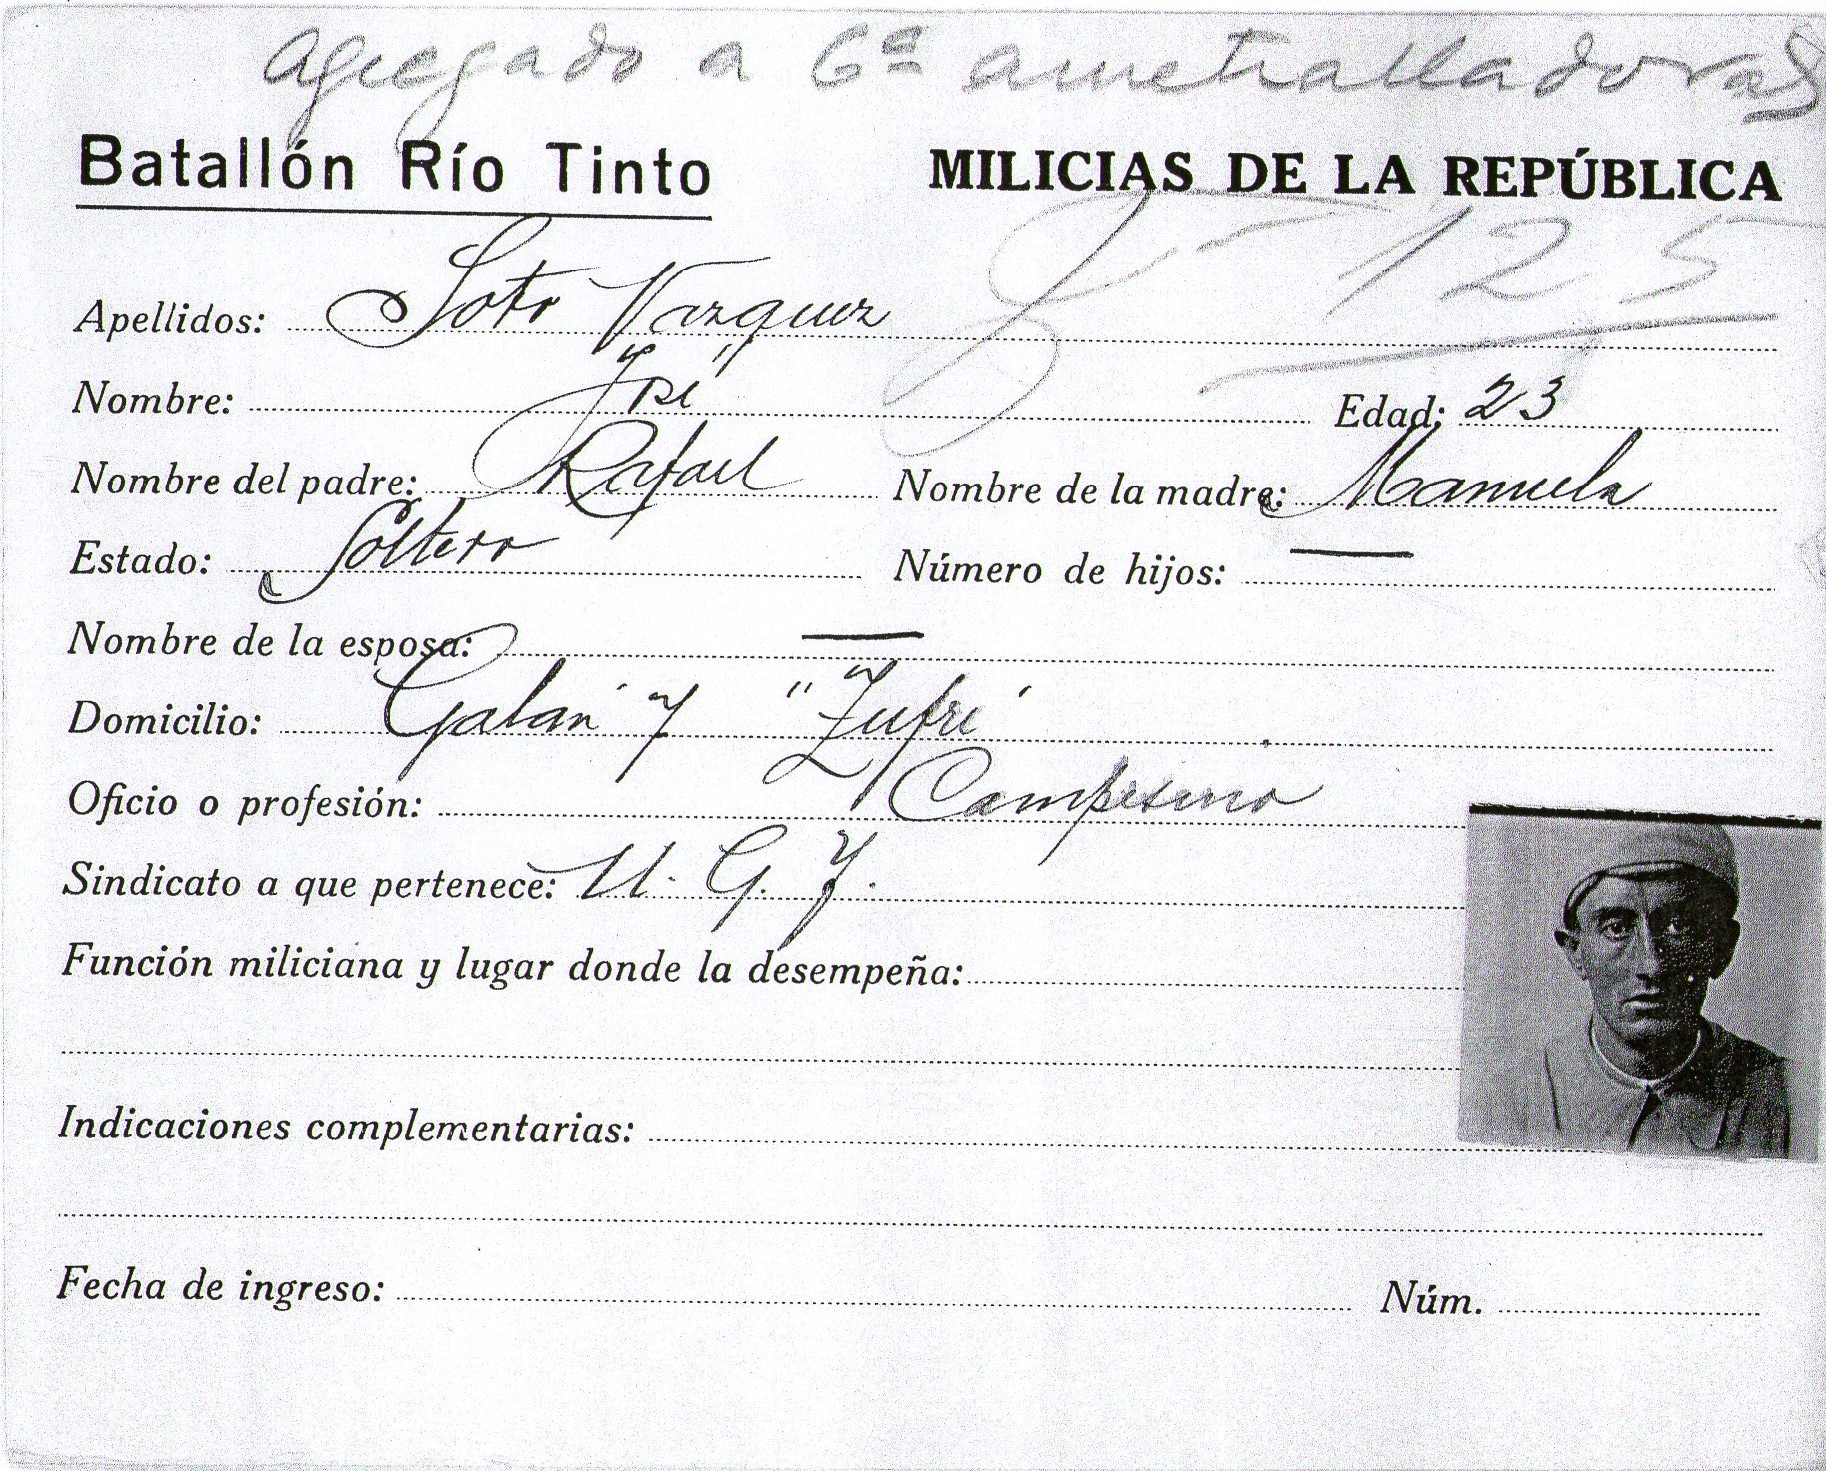 agregado a 6ª ametralladoras
Batallón Río Tinto MILICIAS DE LA REPÚBLICA
125
Apellidos: Soto Vazquez
Nombre: José Edad: 23
Nombre del padre: Rafael Nombre de la madre: Manuela
Estado: Soltero Número de hijos: —
Nombre de la esposa: —
Domicilio: Galan 7 "Zufre"
Oficio o profesión: Campesino
Sindicato a que pertenece: U. G. T.
Función miliciana y lugar donde la desempeña:
Indicaciones complementarias:
Fecha de ingreso: Núm.